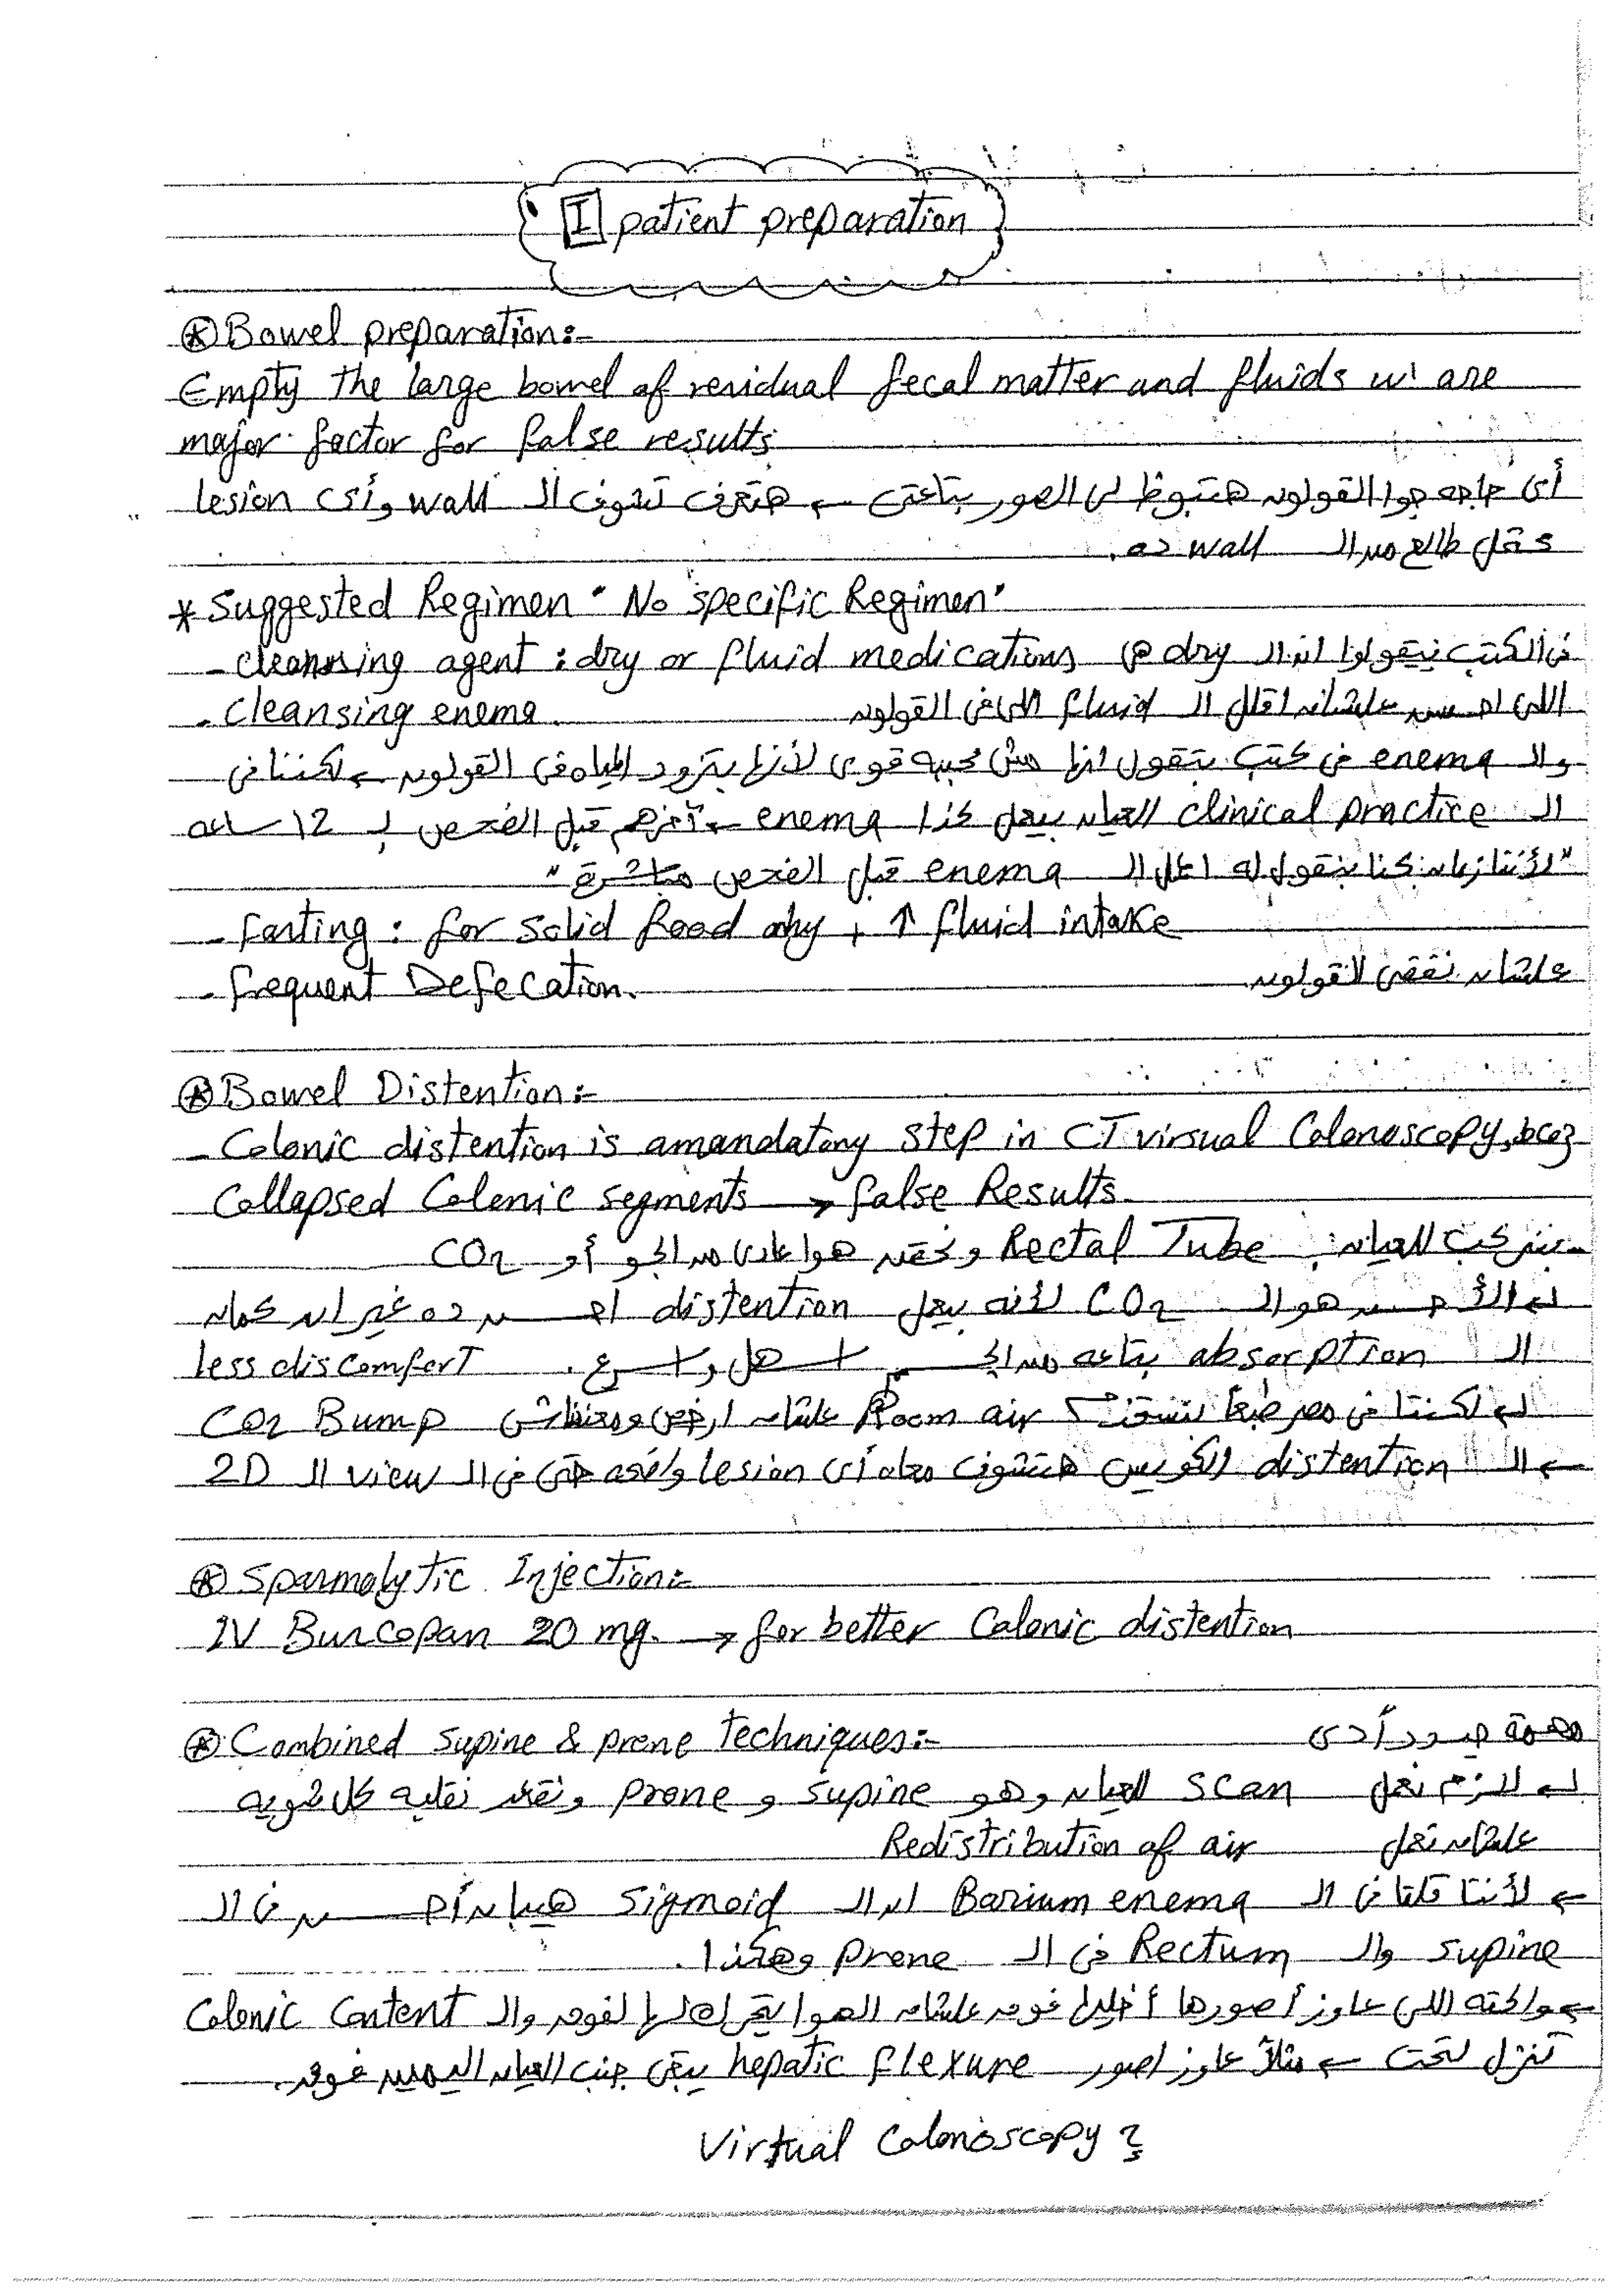 I patient preparation
⊛ Bowel preparation:-
Empty the large bowel of residual fecal matter and fluids w' are
major factor for false results
أى حاجه جوا القولون هتبوظ لى الصور بتاعتى ← هتعرف تشوف الـ wall وأى lesion
طالع من الـ wall ده.
* Suggested Regimen " No specific Regimen"
- cleansing agent : dry or fluid medications فى الكتب بيقولوا ان الـ dry هى
اللى احسن علشان اقلل الـ fluid اللى فى القولون
- Cleansing enema
والـ enema فى كتب بتقول انها مش محببه قوى لأنها بتزود المياه فى القولون ← لكننا فى
الـ clinical practice العيان بيعمل كذا enema ← آخرهم قبل الفحص بـ 12 ساعه
"لأننا زمان كنا بنقول له اعمل الـ enema قبل الفحص مباشرة"
- Fasting : for solid food only + ↑ fluid intake
علشان نفضى القولون
- frequent Defecation.
⊛ Bowel Distention:-
- Colonic distention is amandatory step in CT virsual Colonoscopy, bcoz
Collapsed Colonic segments → false Results.
- بنركب للعيان Rectal Tube ونحقنه هوا عادى من الجو أو CO2
الأحسن هو الـ CO2 لأنه بيعمل distention احسن ده غير ان كمان
الـ absorption بتاعه من الجسم اسهل واسرع . less discomfort
لكننا فى مصر طبعاً بنستخدم Room air علشان ارخص ومعندناش CO2 Bump
← الـ distention الكويس هتشوف معاه أى lesion واضحه حتى فى الـ view الـ 2D
⊛ Spasmolytic Injection:-
IV Buscopan 20 mg. → for better Colonic distention
⊛ Combined supine & prone Techniques:- مهمة جداً
لازم نعمل scan للعيان وهو supine و prone ونقعد نقلبه كل شويه
علشان نعمل Redistribution of air
← لأننا قلنا فى الـ Barium enema ان الـ sigmoid هيبان أحسن فى الـ
supine والـ Rectum فى الـ prone وهكذا .
← والحته اللى عاوز أصورها أخليها فوق علشان الهوا يتحرك لها لفوق والـ Colonic Content
تنزل لتحت ← مثلاً عاوز اصور hepatic flexure يبقى جنب العيان اليمين فوق.
Virtual Colonoscopy